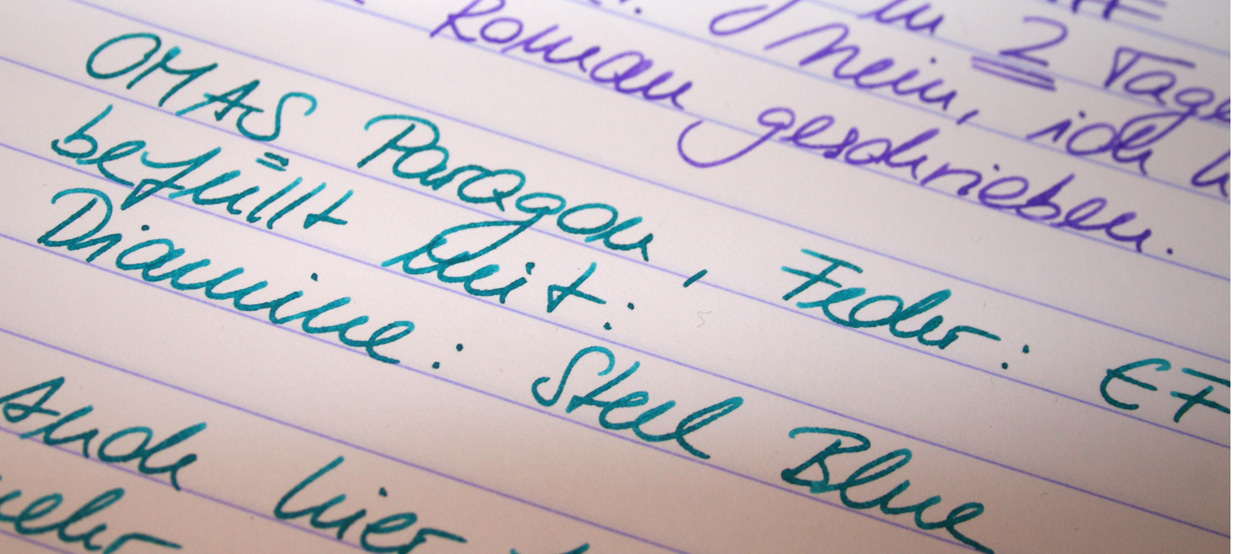 in 2 Tage
Nein, ich
Roman geschrieben.
OMAS Paragon, Feder: EF
befüllt mit:
Diamine: Steel Blue
Auch hier
mehr